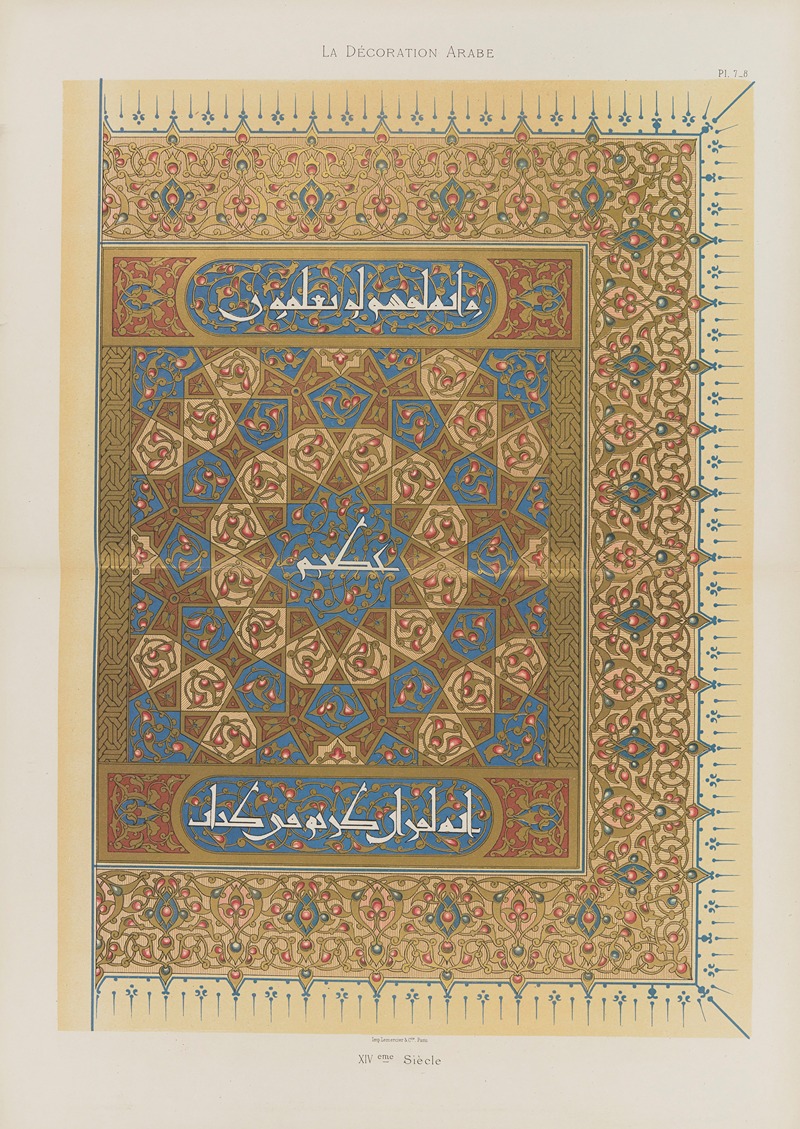 LA DÉCORATION ARABE
Pl. 7_8
وانه لقسم لو تعلمون
عظيم
انه لقران كريم في كتاب
Imp. Lemercier & Cie. Paris
XIV eme Siècle